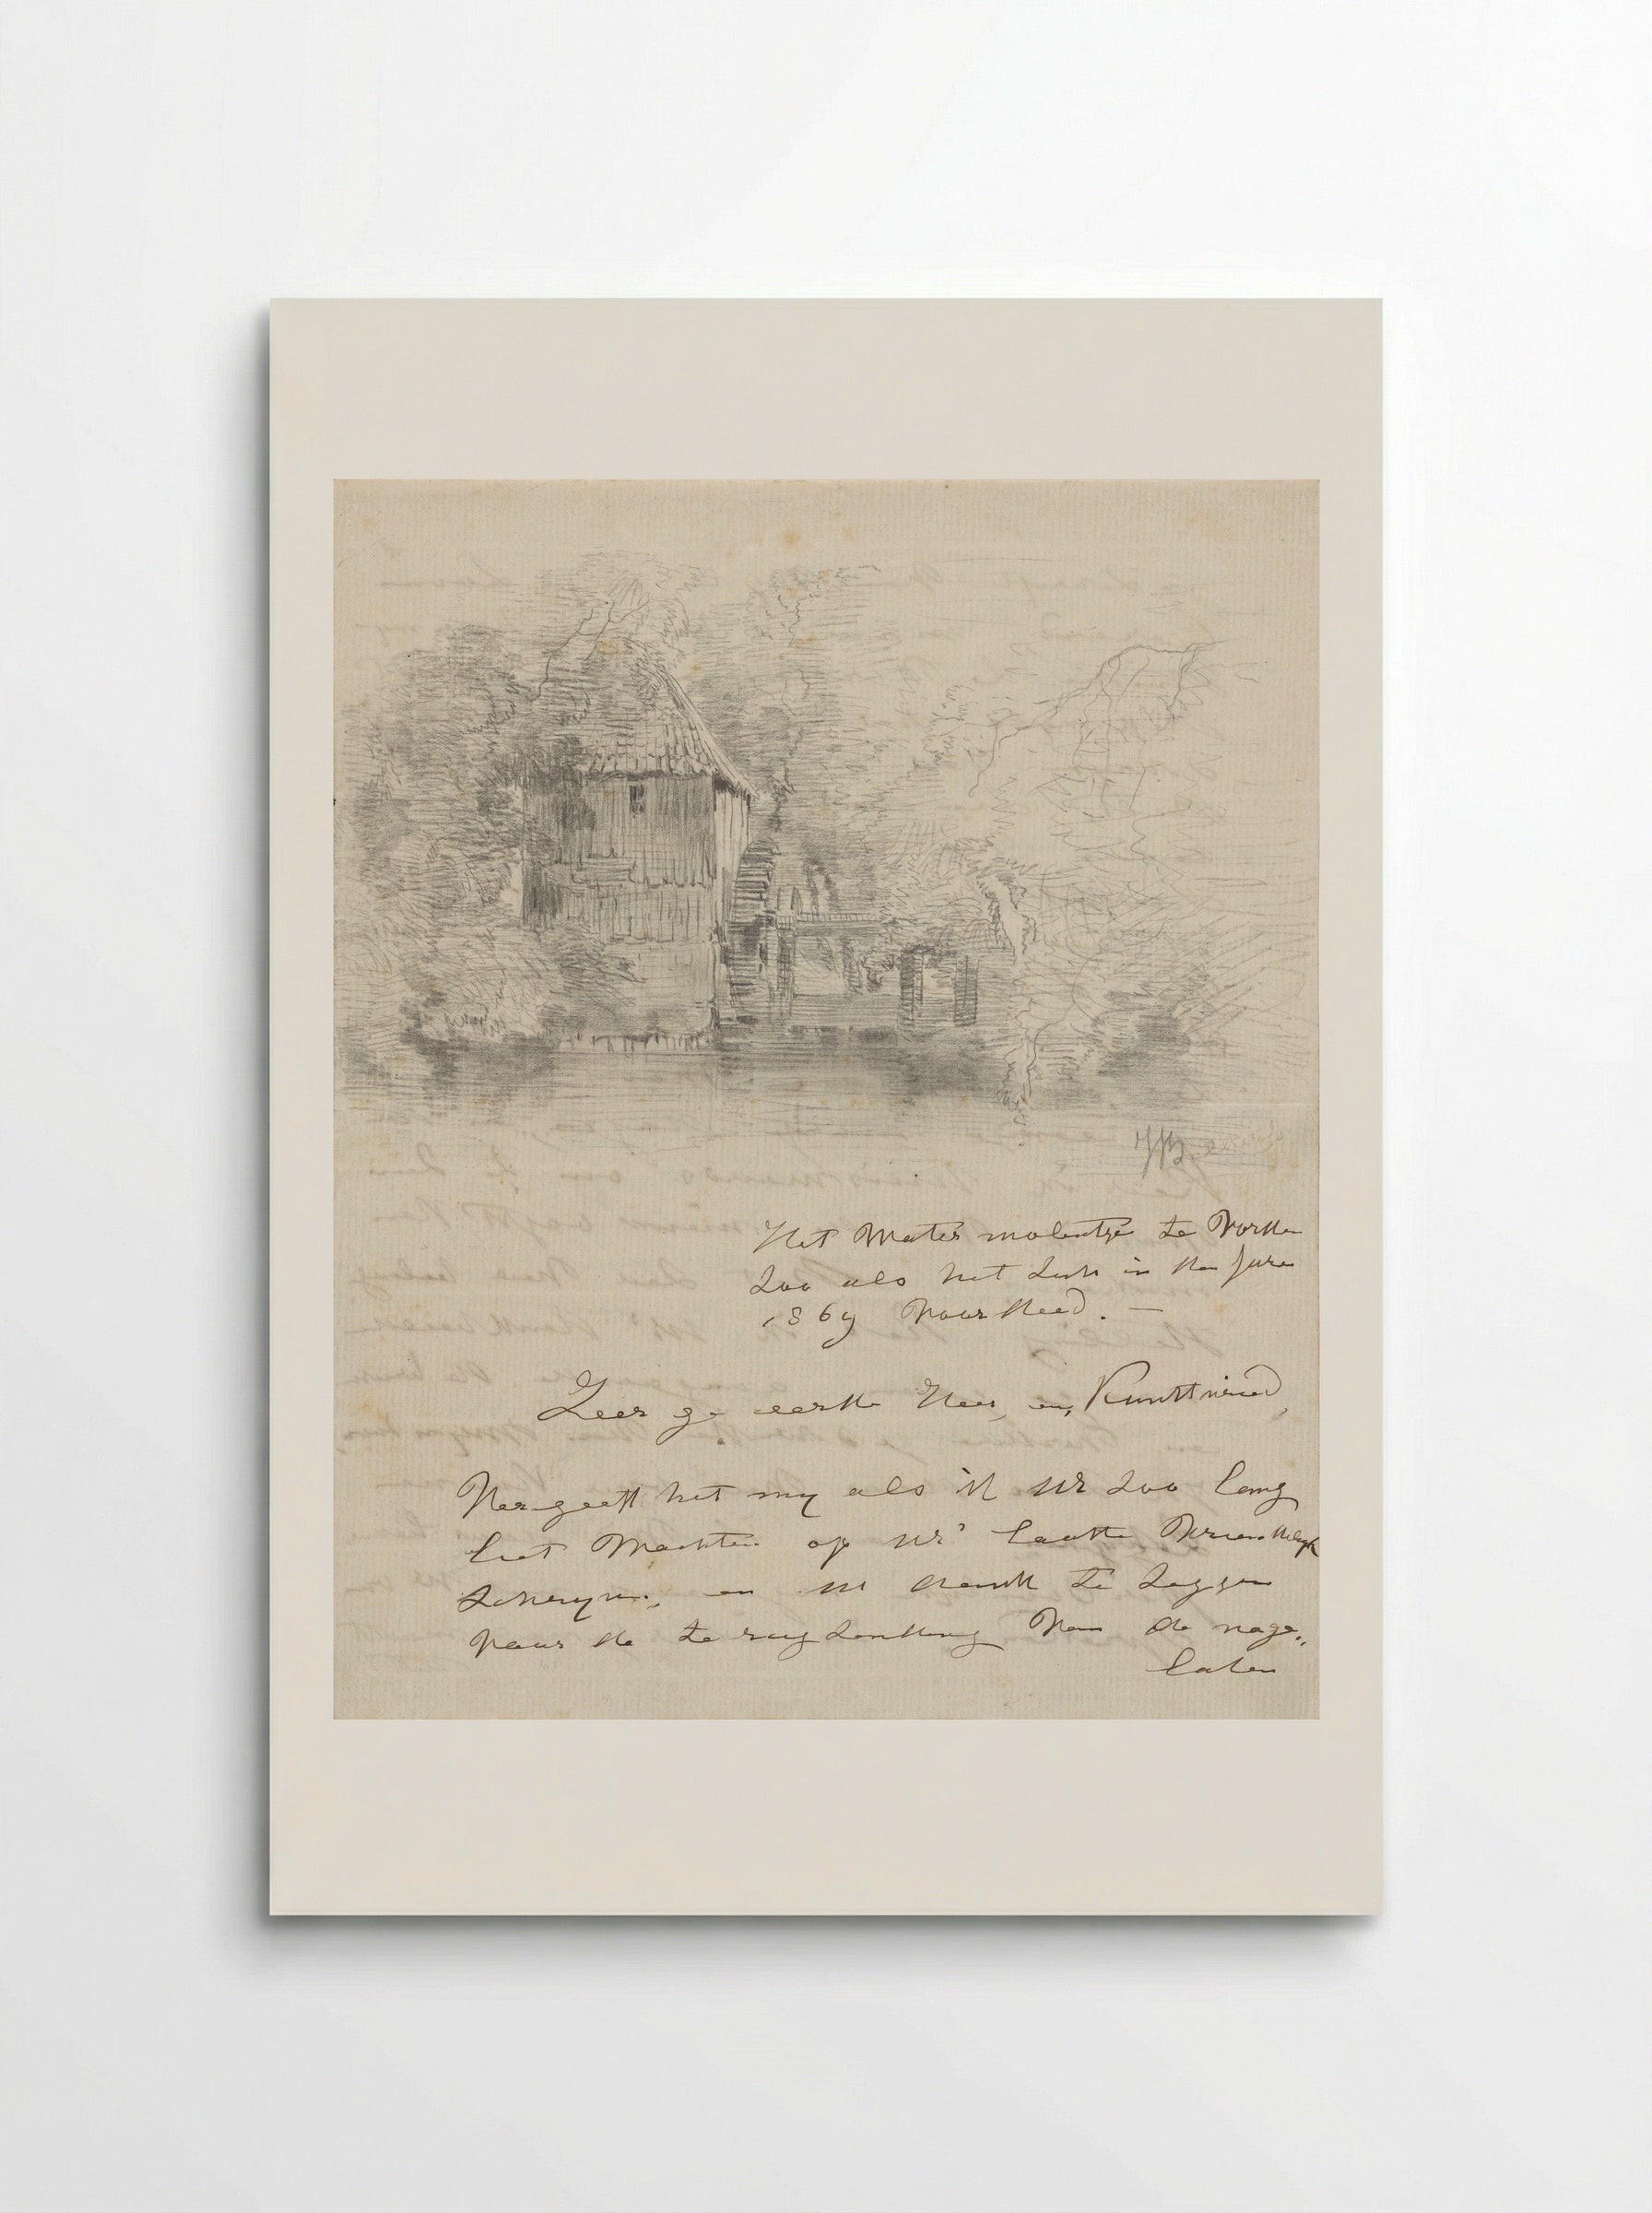 JWB
Het Water molentje te Vorden
zoo als het zich in den Jare
1869 voordeed. —
Zeer ge eerde Heer, en, Kunstvriend,
Vergeeft het my als ik UE zoo lang
liet Wachten op UE' laatste Vriendelyk
schryven, en UE dank te zeggen
voor de te rug zending Van de nage„
laten